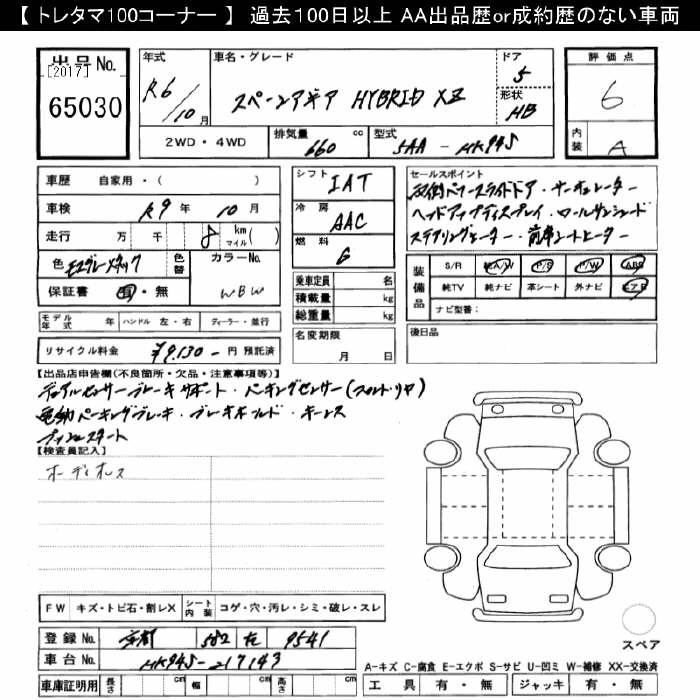 【 トレタマ100コーナー 】 過去100日以上 AA出品歴or成約歴のない車両
出品No.
[2017]
65030
年式
R6/10月
車名・グレード
スペーシアギア HYBRID XZ
ドア
5
形状
HB
評価点
6
内装
A
2WD・4WD
排気量
660 cc
型式
5AA - MK94S
車歴 自家用・( )
車検 R9年 10月
走行 万 千 8 km マイル( )
色 モスグレーメタック
色替
カラーNo.
WBW
保証書 有・無
シフト IAT
冷房 AAC
燃料 G
乗車定員 名
積載量 kg
総重量 kg
セールスポイント
両側パワースライドドア・サーキュレーター
ヘッドアップディスプレイ・ロールサンシェード
ステアリングヒーター・前席シートヒーター
装備品
S/R 純A/W P/S P/W ABS
純TV 純ナビ 革シート 外ナビ エアB
ナビ型番:
モデル年式 年 ハンドル 左・右 ディーラー・並行
名変期限
月 日
後日品
リサイクル料金 ¥9,130- 円 預託済
【出品店申告欄(不良箇所・欠品・注意事項等)】
デュアルセンサーブレーキサポート・パーキングセンサー(フロント・リヤ)
電動パーキングブレーキ・ブレーキホールド・キーレス
プッシュスタート
【検査員記入】
オーディオレス
FW キズ・トビ石・割レX シート内装 コゲ・穴・汚レ・シミ・破レ・スレ
登録No. 京都 582 な 9541
車台No. MK94S-217143
車庫証明用 長さ cm 幅 cm 高さ cm
スペア
A-キズ C-腐食 E-エクボ S-サビ U-凹ミ W-補修 XX-交換済
工具 有・無 ジャッキ 有・無